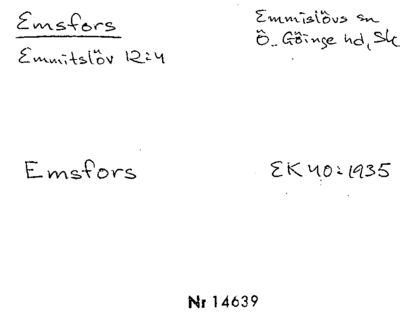 Emsfors
Emmitslöv 12:4
Emmislövs sn
Ö. Göinge hd, Sk
Emsfors
EK 40:1935
Nr 14639